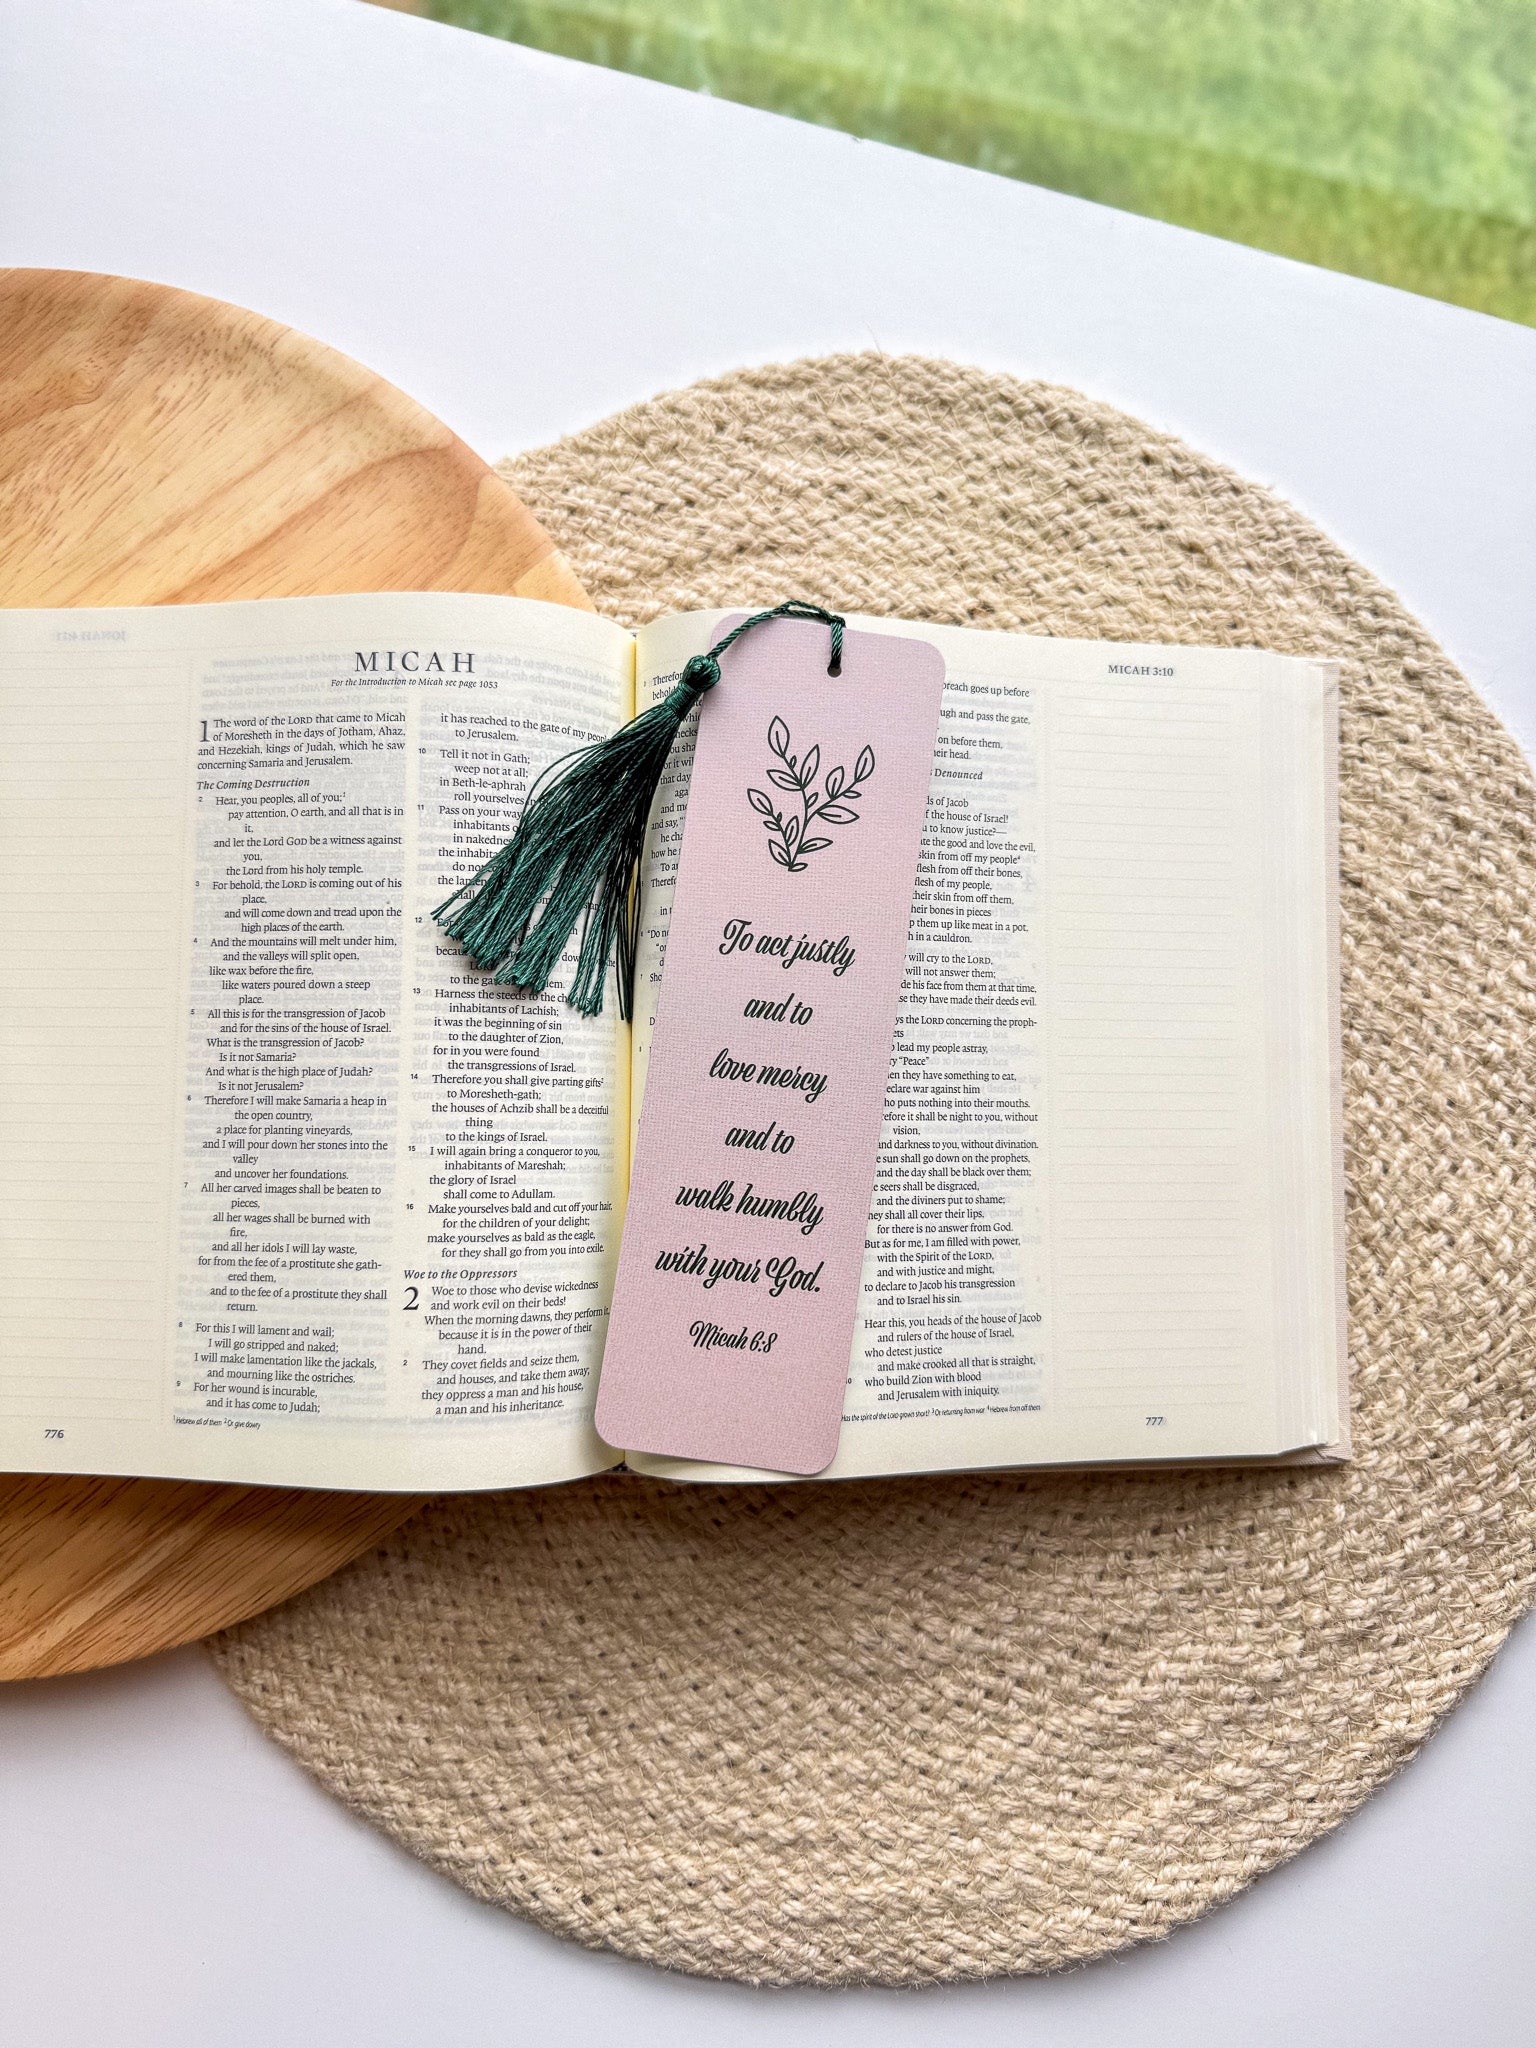 MICAH
For the Introduction to Micah see page 1053
1 The word of the LORD that came to Micah
of Moresheth in the days of Jotham, Ahaz,
and Hezekiah, kings of Judah, which he saw
concerning Samaria and Jerusalem.
The Coming Destruction
2 Hear, you peoples, all of you;1
pay attention, O earth, and all that is in
it,
and let the Lord GOD be a witness against
you,
the Lord from his holy temple.
3 For behold, the LORD is coming out of his
place,
and will come down and tread upon the
high places of the earth.
4 And the mountains will melt under him,
and the valleys will split open,
like wax before the fire,
like waters poured down a steep
place.
5 All this is for the transgression of Jacob
and for the sins of the house of Israel.
What is the transgression of Jacob?
Is it not Samaria?
And what is the high place of Judah?
Is it not Jerusalem?
6 Therefore I will make Samaria a heap in
the open country,
a place for planting vineyards,
and I will pour down her stones into the
valley
and uncover her foundations.
7 All her carved images shall be beaten to
pieces,
all her wages shall be burned with
fire,
and all her idols I will lay waste,
for from the fee of a prostitute she gath-
ered them,
and to the fee of a prostitute they shall
return.
8 For this I will lament and wail;
I will go stripped and naked;
I will make lamentation like the jackals,
and mourning like the ostriches.
9 For her wound is incurable,
and it has come to Judah;
1 Hebrew all of them 2 Or give dowry
776
it has reached to the gate of my people,
to Jerusalem.
10 Tell it not in Gath;
weep not at all;
in Beth-le-aphrah
roll yourselves
11 Pass on your way
inhabitants
in nakedness
the
do
the
12
to the
13 Harness the steeds to the
inhabitants of Lachish;
it was the beginning of sin
to the daughter of Zion,
for in you were found
the transgressions of Israel.
14 Therefore you shall give parting gifts2
to Moresheth-gath;
the houses of Achzib shall be a deceitful
thing
to the kings of Israel.
15 I will again bring a conqueror to you,
inhabitants of Mareshah;
the glory of Israel
shall come to Adullam.
16 Make yourselves bald and cut off your hair,
for the children of your delight;
make yourselves as bald as the eagle,
for they shall go from you into exile.
Woe to the Oppressors
2 Woe to those who devise wickedness
and work evil on their beds!
When the morning dawns, they perform it,
because it is in the power of their
hand.
2 They covet fields and seize them,
and houses, and take them away;
they oppress a man and his house,
a man and his inheritance.
To act justly
and to
love mercy
and to
walk humbly
with your God.
Micah 6:8
MICAH 3:10
breach goes up before
and pass the gate,
on before them.
head.
Denounced
of Jacob
of the house of Israel!
to know justice?—
the good and love the evil,
skin from off my people4
flesh from off their bones,
flesh of my people,
their skin from off them,
their bones in pieces
them up like meat in a pot,
in a cauldron.
will cry to the LORD,
will not answer them;
his face from them at that time,
they have made their deeds evil.
the LORD concerning the proph-
ets
lead my people astray,
"Peace"
they have something to eat,
declare war against him
puts nothing into their mouths.
it shall be night to you, without
vision,
and darkness to you, without divination.
sun shall go down on the prophets,
and the day shall be black over them;
seers shall be disgraced,
and the diviners put to shame;
they shall all cover their lips,
for there is no answer from God.
But as for me, I am filled with power,
with the Spirit of the LORD,
and with justice and might,
to declare to Jacob his transgression
and to Israel his sin.
Hear this, you heads of the house of Jacob
and rulers of the house of Israel,
who detest justice
and make crooked all that is straight,
who build Zion with blood
and Jerusalem with iniquity.
Has the spirit of the LORD grown short? 3 Or returning from war 4 Hebrew from off them
777